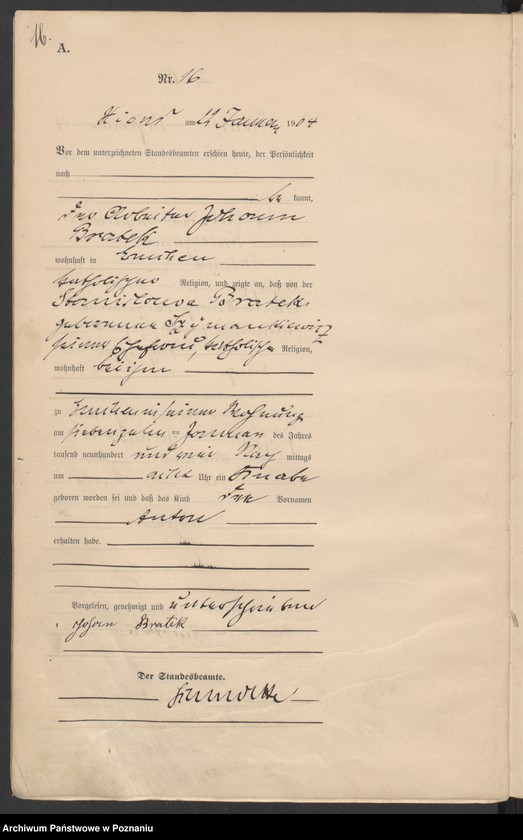 16.
A.
Nr. 16
Xions am 22 Januar 1904
Vor dem unterzeichneten Standesbeamten erschien heute, der Persönlichkeit
nach
be kannt,
der Arbeiter Johann
Bratek
wohnhaft in
katholischer Religion, und zeigte an, daß von der
Stanislawa Bratek,
geborenen Szymankiewicz
seiner Ehefrau, katholischer Religion,
wohnhaft bei ihm
zu in seiner Wohnung
am siebenzehnten Januar des Jahres
tausend neunhundert und vier Nach mittags
um acht Uhr ein Knabe
geboren worden sei und daß das Kind den Vornamen
Anton
erhalten habe.
Vorgelesen, genehmigt und unterschrieben
Johann Bratek
Der Standesbeamte.
Archiwum Państwowe w Poznaniu